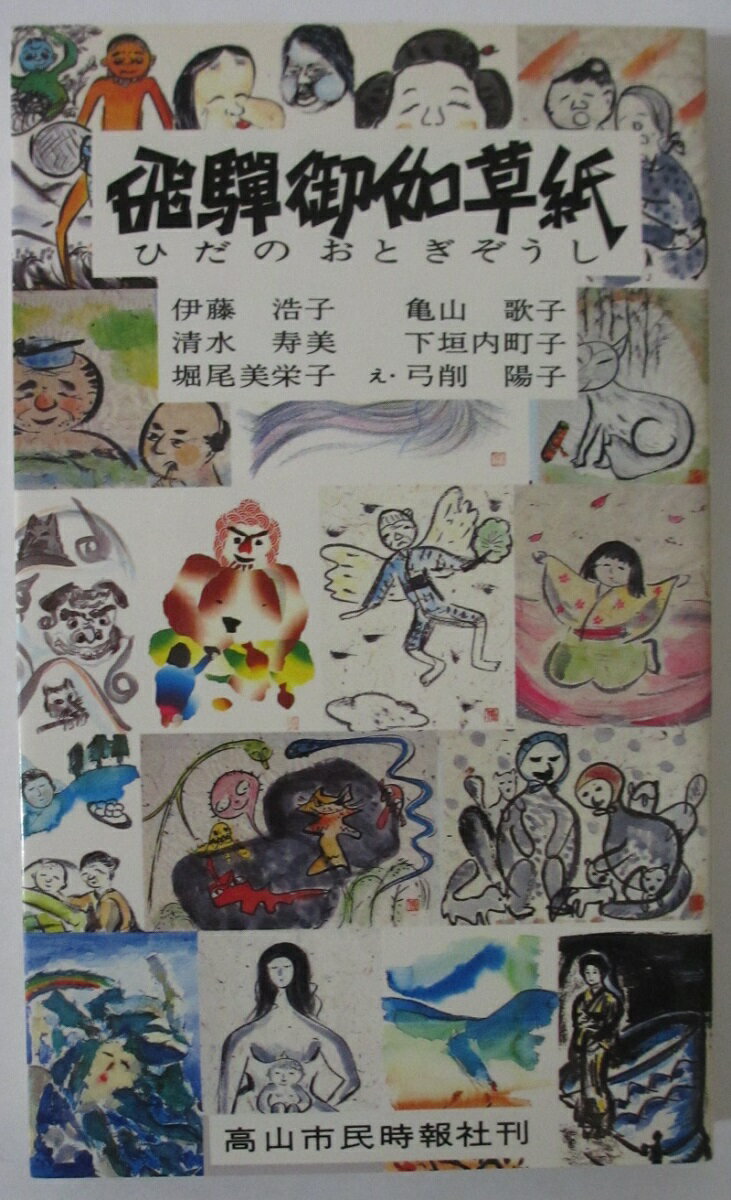 飛騨御伽草紙
ひだの おとぎぞうし
伊藤 浩子 亀山 歌子
清水 寿美 下垣内町子
堀尾美栄子 え・弓削 陽子
高山市民時報社刊